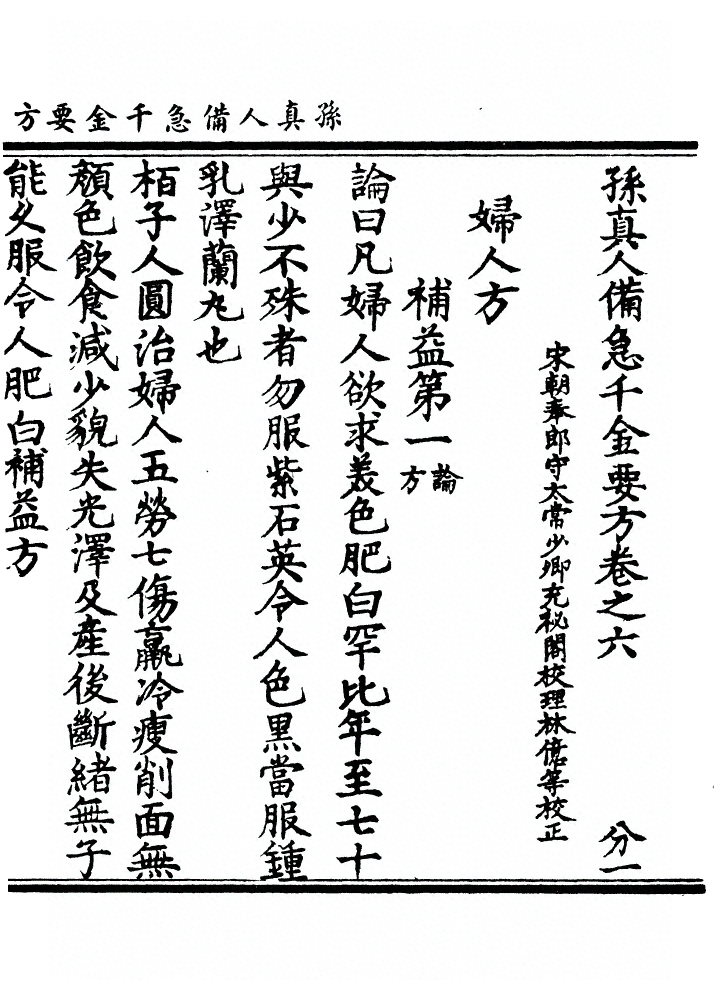 孫真人備急千金要方
孫真人備急千金要方卷之六 分一
宋朝奉郎守太常少卿充祕閣校理林億等校正
婦人方
補益第一 論方
論曰凡婦人欲求美色肥白罕比年至七十
與少不殊者勿服紫石英令人色黑當服鍾
乳澤蘭丸也
栢子人圓治婦人五勞七傷羸冷瘦削面無
顏色飲食減少貌失光澤及產後斷緒無子
能久服令人肥白補益方